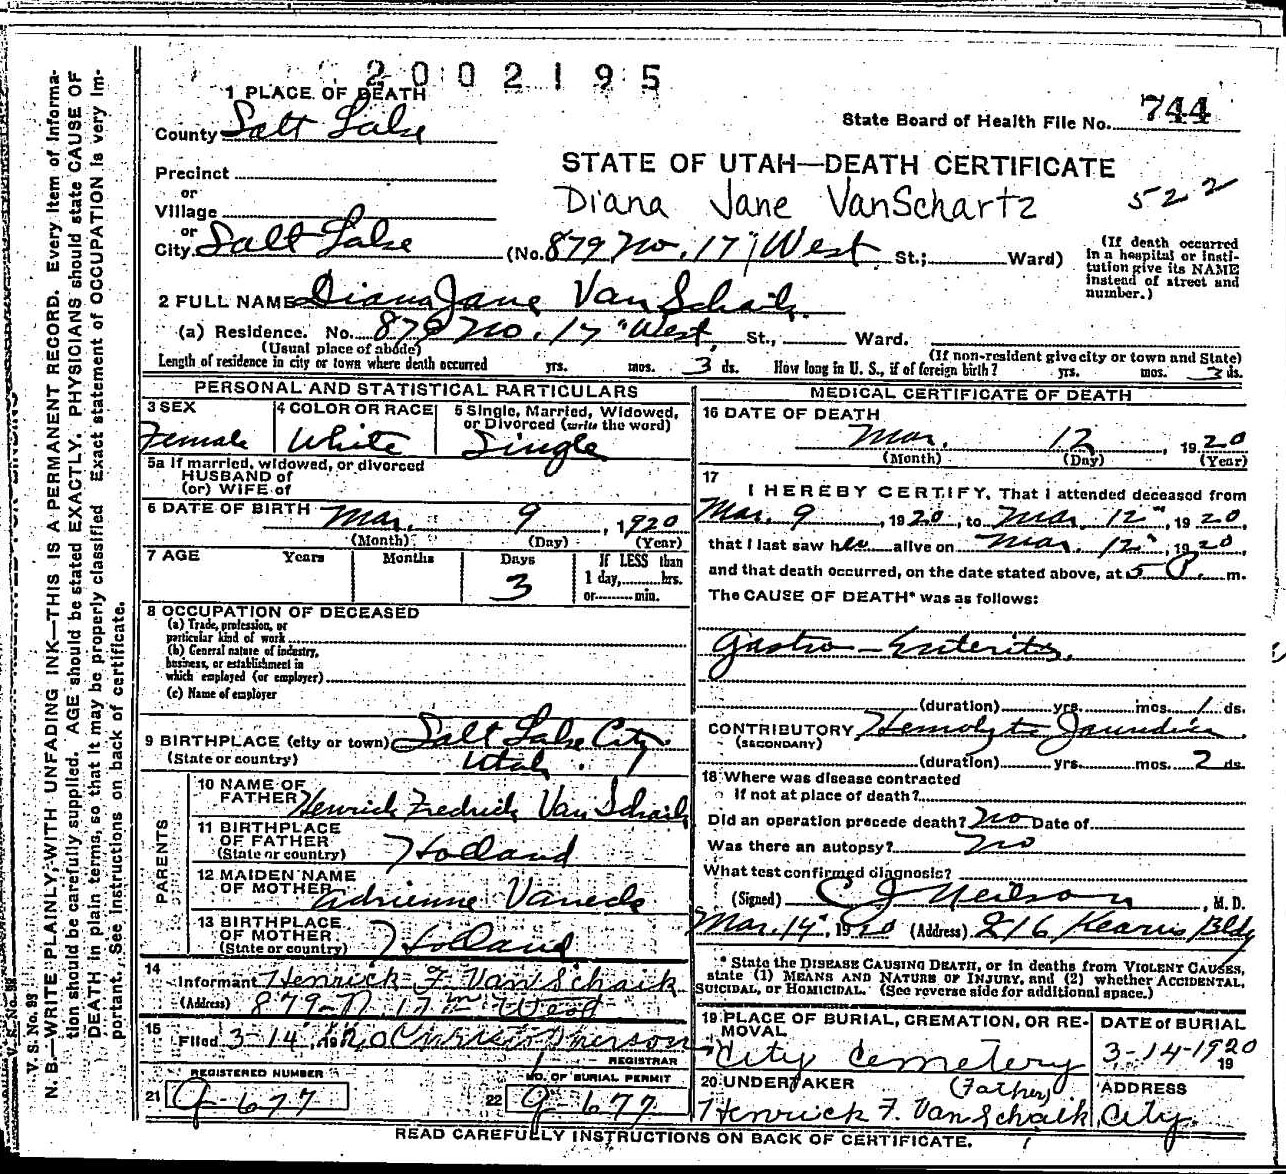 2002195
1 PLACE OF DEATH
County Salt Lake
State Board of Health File No. 744
STATE OF UTAH—DEATH CERTIFICATE
Precinct
or
Village
Diana Jane VanSchartz
522
or
City Salt Lake (No. 879 No. 17" West St.; Ward)
(If death occurred in a hospital or institution give its NAME instead of street and number.)
2 FULL NAME Diana Jane Van Schaik
(a) Residence. No. 879 No. 17" West, St., Ward.
(Usual place of abode) (If non-resident give city or town and State)
Length of residence in city or town where death occurred yrs. mos. 3 ds. How long in U. S., if of foreign birth? yrs. mos. 3 ds.
PERSONAL AND STATISTICAL PARTICULARS
3 SEX
Female
4 COLOR OR RACE
White
5 Single, Married, Widowed, or Divorced (write the word)
Single
5a If married, widowed, or divorced
HUSBAND of
(or) WIFE of
6 DATE OF BIRTH Mar. 9, 1920
(Month) (Day) (Year)
7 AGE Years Months Days If LESS than
3 1 day, hrs.
or min.
8 OCCUPATION OF DECEASED
(a) Trade, profession, or
particular kind of work
(b) General nature of industry,
business, or establishment in
which employed (or employer)
(c) Name of employer
9 BIRTHPLACE (city or town) Salt Lake City
(State or country) Utah.
PARENTS
10 NAME OF
FATHER Henrick Fredrick Van Schaik
11 BIRTHPLACE
OF FATHER
(State or country) Holland
12 MAIDEN NAME
OF MOTHER Adrienne Vaneck
13 BIRTHPLACE
OF MOTHER
(State or country) Holland
14
Informant Henrick F. Van Schaik
(Address) 879-N 17th West
15
Filed 3-14, 1920
REGISTRAR
REGISTERED NUMBER
21 G-677
NO. OF BURIAL PERMIT
22 G-677
MEDICAL CERTIFICATE OF DEATH
16 DATE OF DEATH
Mar. 12, 1920
(Month) (Day) (Year)
17
I HEREBY CERTIFY, That I attended deceased from
Mar. 9, 1920, to Mar. 12", 1920,
that I last saw her alive on Mar. 12", 1920
and that death occurred, on the date stated above, at 5 P. m.
The CAUSE OF DEATH* was as follows:
Gastro-Enteritis.
(duration) yrs. mos. 1 ds.
CONTRIBUTORY Hemolytic Jaundice
(SECONDARY)
(duration) yrs. mos. 2 ds.
18 Where was disease contracted
If not at place of death?
Did an operation precede death? No Date of
Was there an autopsy? No
What test confirmed diagnosis?
(Signed) C J Neilson, M. D.
Mar. 14", 1920 (Address) 216 Kearns Bldg
* State the DISEASE CAUSING DEATH, or in deaths from VIOLENT CAUSES,
state (1) MEANS AND NATURE OF INJURY, and (2) whether ACCIDENTAL,
SUICIDAL, or HOMICIDAL. (See reverse side for additional space.)
19 PLACE OF BURIAL, CREMATION, OR REMOVAL
City Cemetery
DATE of BURIAL
3-14-1920
19
20 UNDERTAKER (Father)
Henrick F. VanSchaik
ADDRESS
City.
READ CAREFULLY INSTRUCTIONS ON BACK OF CERTIFICATE.
V. S. No. 98
N. B.—WRITE PLAINLY WITH UNFADING INK—THIS IS A PERMANENT RECORD. Every item of informa-
tion should be carefully supplied. AGE should be stated EXACTLY. PHYSICIANS should state CAUSE OF
DEATH in plain terms, so that it may be properly classified. Exact statement of OCCUPATION is very im-
portant. See instructions on back of certificate.